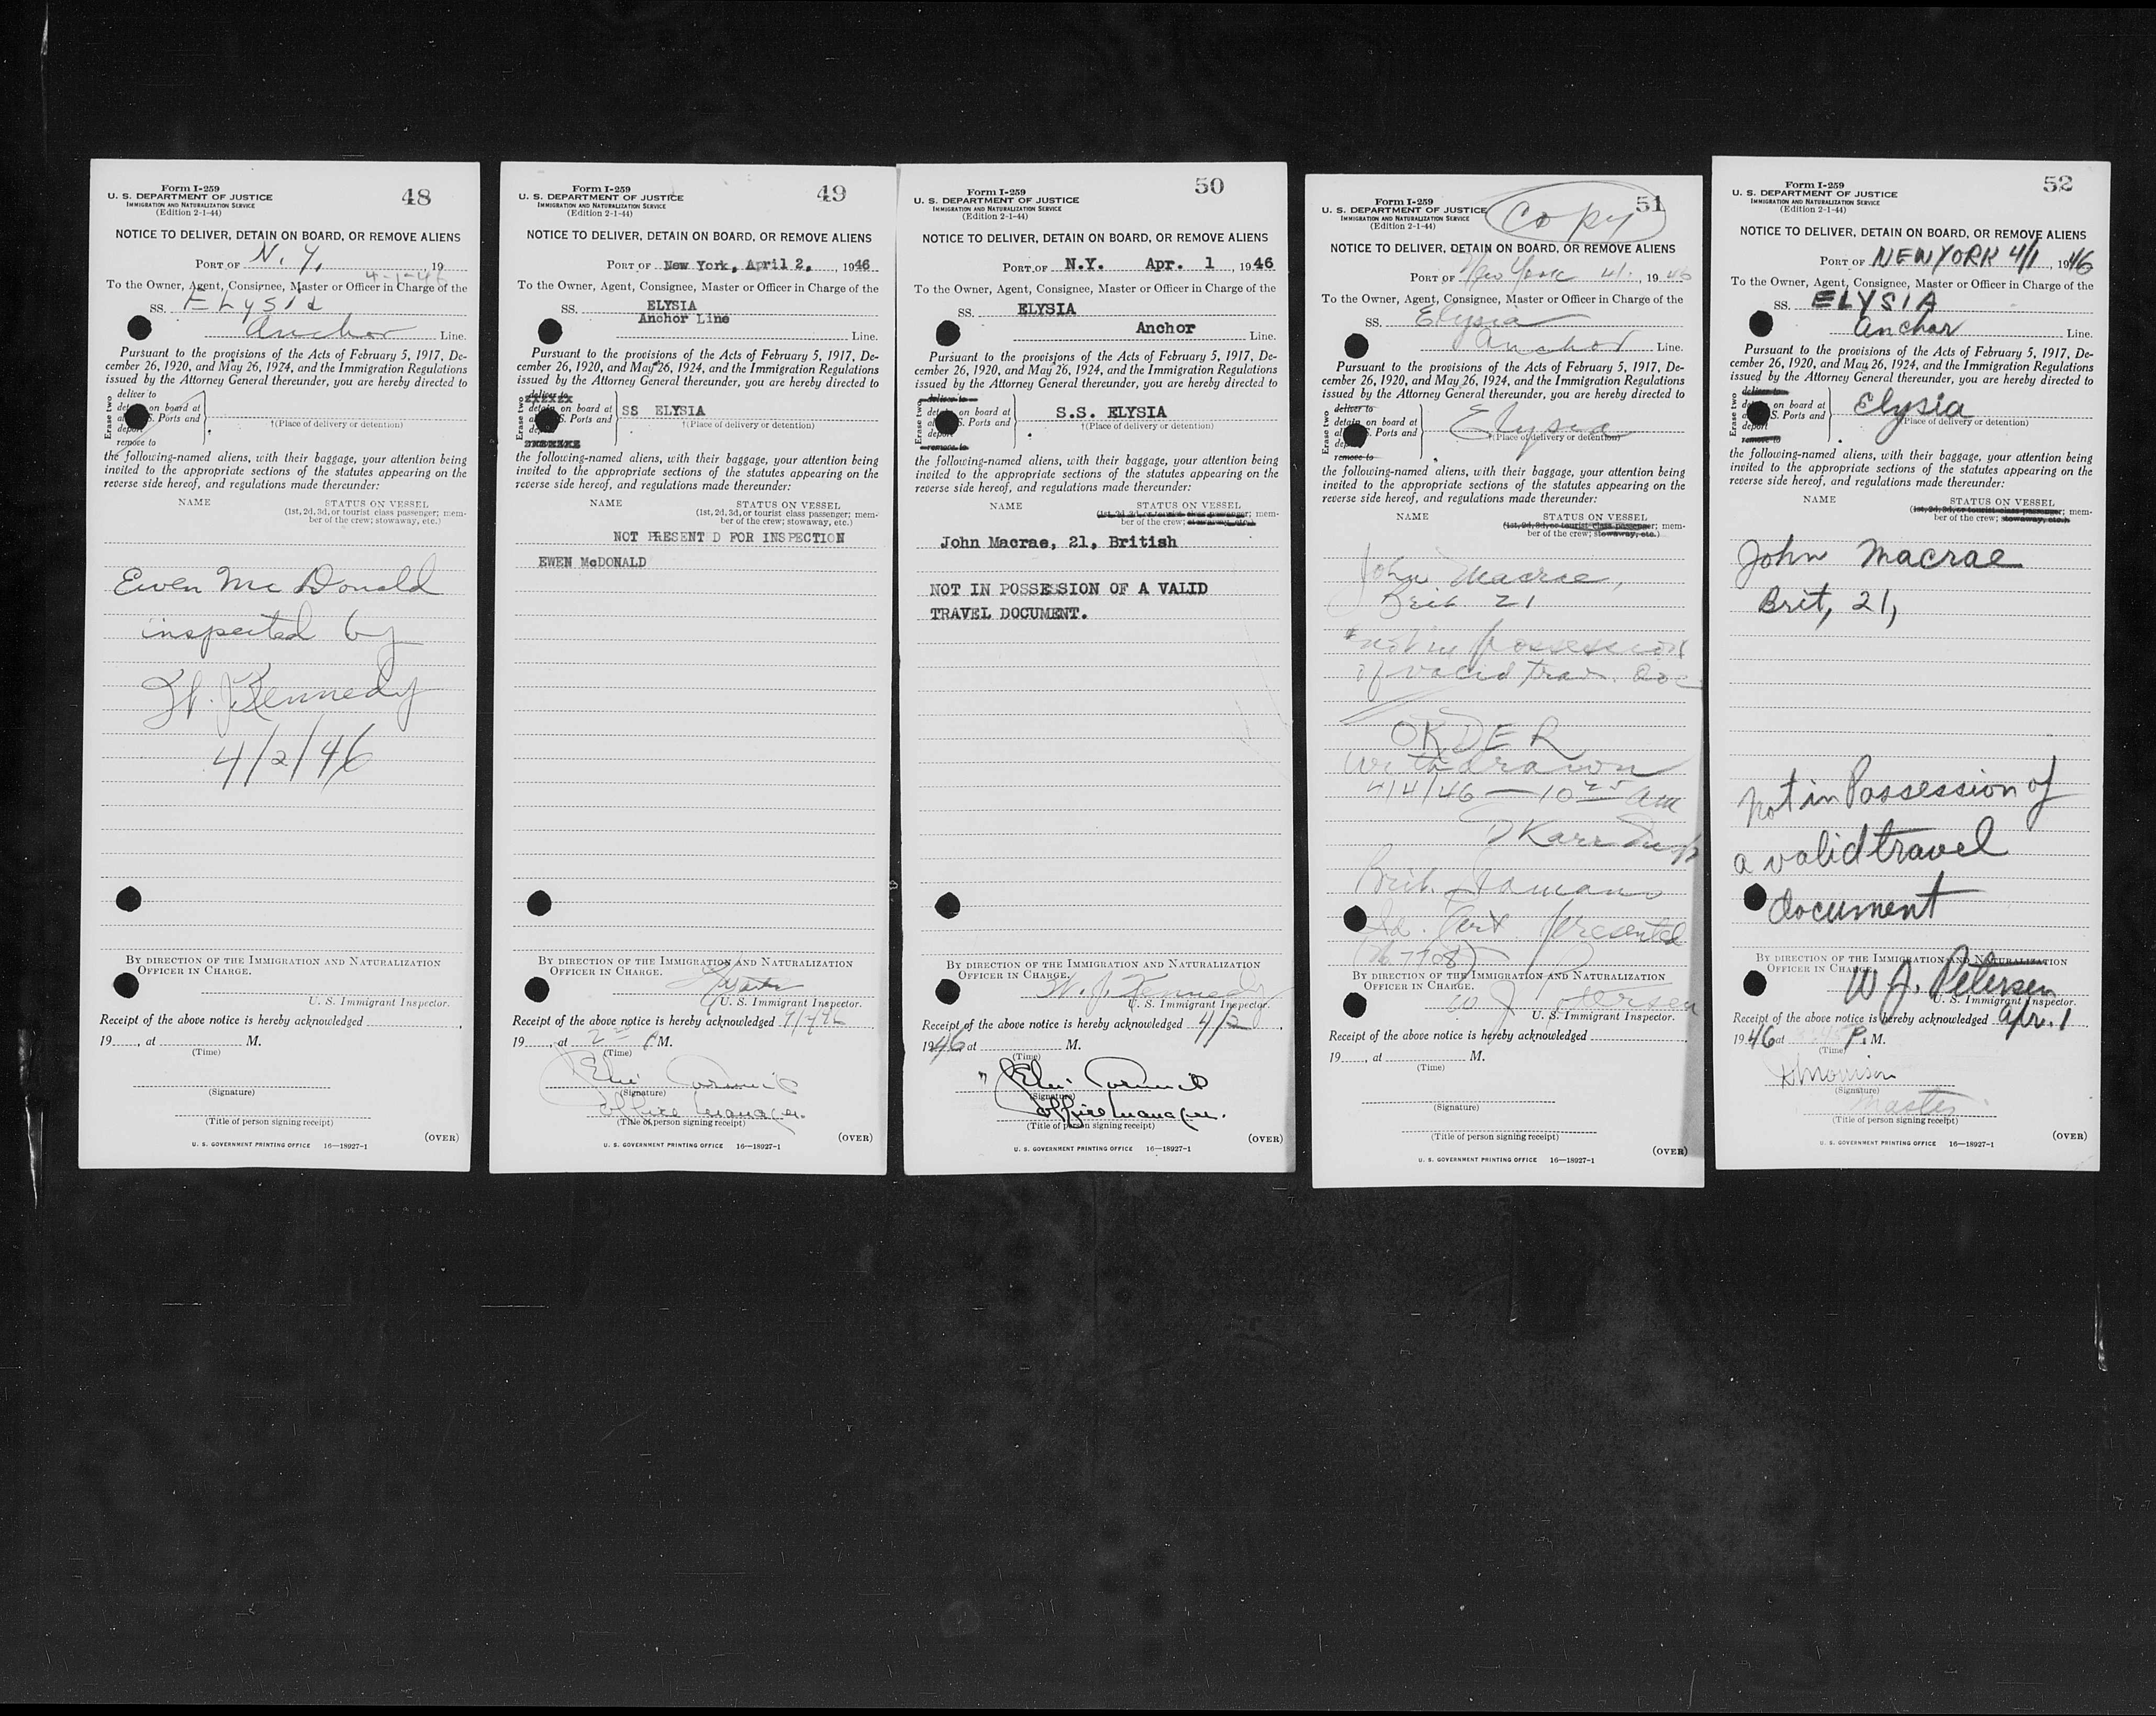 Form I-259
U. S. DEPARTMENT OF JUSTICE
IMMIGRATION AND NATURALIZATION SERVICE
(Edition 2-1-44)
48
NOTICE TO DELIVER, DETAIN ON BOARD, OR REMOVE ALIENS
PORT OF N. Y. 4-1-46 19
To the Owner, Agent, Consignee, Master or Officer in Charge of the
SS. ELYSIA
Anchor Line.
Pursuant to the provisions of the Acts of February 5, 1917, De-
cember 26, 1920, and May 26, 1924, and the Immigration Regulations
issued by the Attorney General thereunder, you are hereby directed to
Erase two
deliver to
on board at
S. Ports and
†(Place of delivery or detention)
remove to
the following-named aliens, with their baggage, your attention being
invited to the appropriate sections of the statutes appearing on the
reverse side hereof, and regulations made thereunder:
NAME STATUS ON VESSEL
(1st, 2d, 3d, or tourist class passenger; mem-
ber of the crew; stowaway, etc.)
Ewen McDonald
inspected by
Kennedy
4/2/46
BY DIRECTION OF THE IMMIGRATION AND NATURALIZATION
OFFICER IN CHARGE.
U. S. Immigrant Inspector.
Receipt of the above notice is hereby acknowledged
19, at M.
(Time)
(Signature)
(Title of person signing receipt)
(OVER)
U. S. GOVERNMENT PRINTING OFFICE 16—18927-1
Form I-259
U. S. DEPARTMENT OF JUSTICE
IMMIGRATION AND NATURALIZATION SERVICE
(Edition 2-1-44)
49
NOTICE TO DELIVER, DETAIN ON BOARD, OR REMOVE ALIENS
PORT OF New York, April 2, 1946
To the Owner, Agent, Consignee, Master or Officer in Charge of the
SS. ELYSIA
Anchor Line
Line.
Pursuant to the provisions of the Acts of February 5, 1917, De-
cember 26, 1920, and May 26, 1924, and the Immigration Regulations
issued by the Attorney General thereunder, you are hereby directed to
Erase two
on board at SS ELYSIA
S. Ports and
†(Place of delivery or detention)
the following-named aliens, with their baggage, your attention being
invited to the appropriate sections of the statutes appearing on the
reverse side hereof, and regulations made thereunder:
NAME STATUS ON VESSEL
(1st, 2d, 3d, or tourist class passenger; mem-
ber of the crew; stowaway, etc.)
NOT PRESENT D FOR INSPECTION
EWEN McDONALD
BY DIRECTION OF THE IMMIGRATION AND NATURALIZATION
OFFICER IN CHARGE.
U. S. Immigrant Inspector.
Receipt of the above notice is hereby acknowledged
19, at 2 P M.
(Time)
(Signature)
office manager.
(Title of person signing receipt)
(OVER)
U. S. GOVERNMENT PRINTING OFFICE 16—18927-1
Form I-259
U. S. DEPARTMENT OF JUSTICE
IMMIGRATION AND NATURALIZATION SERVICE
(Edition 2-1-44)
50
NOTICE TO DELIVER, DETAIN ON BOARD, OR REMOVE ALIENS
PORT OF N.Y. Apr. 1, 1946
To the Owner, Agent, Consignee, Master or Officer in Charge of the
SS. ELYSIA
Anchor
Line.
Pursuant to the provisions of the Acts of February 5, 1917, De-
cember 26, 1920, and May 26, 1924, and the Immigration Regulations
issued by the Attorney General thereunder, you are hereby directed to
Erase two
deliver to
on board at S.S. ELYSIA
S. Ports and
†(Place of delivery or detention)
remove to
the following-named aliens, with their baggage, your attention being
invited to the appropriate sections of the statutes appearing on the
reverse side hereof, and regulations made thereunder:
NAME STATUS ON VESSEL
(1st, 2d, 3d, or tourist class passenger; mem-
ber of the crew; stowaway, etc.)
John Macrae, 21, British
NOT IN POSSESSION OF A VALID
TRAVEL DOCUMENT.
BY DIRECTION OF THE IMMIGRATION AND NATURALIZATION
OFFICER IN CHARGE.
W. J. Kennedy
U. S. Immigrant Inspector.
Receipt of the above notice is hereby acknowledged 4/2
1946 at M.
(Time)
(Signature)
office manager.
(Title of person signing receipt)
(OVER)
U. S. GOVERNMENT PRINTING OFFICE 16—18927-1
Form I-259
U. S. DEPARTMENT OF JUSTICE
IMMIGRATION AND NATURALIZATION SERVICE
(Edition 2-1-44)
Copy
51
NOTICE TO DELIVER, DETAIN ON BOARD, OR REMOVE ALIENS
PORT OF New York 4/1 1946
To the Owner, Agent, Consignee, Master or Officer in Charge of the
SS. Elysia
Anchor Line.
Pursuant to the provisions of the Acts of February 5, 1917, De-
cember 26, 1920, and May 26, 1924, and the Immigration Regulations
issued by the Attorney General thereunder, you are hereby directed to
Erase two
deliver to
detain on board at Elysia
S. Ports and
†(Place of delivery or detention)
remove to
the following-named aliens, with their baggage, your attention being
invited to the appropriate sections of the statutes appearing on the
reverse side hereof, and regulations made thereunder:
NAME STATUS ON VESSEL
(1st, 2d, 3d, or tourist class passenger; mem-
ber of the crew; stowaway, etc.)
John Macrae,
Brit 21
not in possession
of valid trav. doc
ORDER
withdrawn
4/4/46 — 10 25 am
D Karr Insp
Brit. Seamans
Cert presented
BY DIRECTION OF THE IMMIGRATION AND NATURALIZATION
OFFICER IN CHARGE.
W J Petersen
U. S. Immigrant Inspector.
Receipt of the above notice is hereby acknowledged
19, at M.
(Time)
(Signature)
(Title of person signing receipt)
(OVER)
U. S. GOVERNMENT PRINTING OFFICE 16—18927-1
Form I-259
U. S. DEPARTMENT OF JUSTICE
IMMIGRATION AND NATURALIZATION SERVICE
(Edition 2-1-44)
52
NOTICE TO DELIVER, DETAIN ON BOARD, OR REMOVE ALIENS
PORT OF NEW YORK 4/1, 1946
To the Owner, Agent, Consignee, Master or Officer in Charge of the
SS. ELYSIA
Anchor Line.
Pursuant to the provisions of the Acts of February 5, 1917, De-
cember 26, 1920, and May 26, 1924, and the Immigration Regulations
issued by the Attorney General thereunder, you are hereby directed to
Erase two
deliver to
on board at Elysia
S. Ports and
†(Place of delivery or detention)
remove to
the following-named aliens, with their baggage, your attention being
invited to the appropriate sections of the statutes appearing on the
reverse side hereof, and regulations made thereunder:
NAME STATUS ON VESSEL
(1st, 2d, 3d, or tourist class passenger; mem-
ber of the crew; stowaway, etc.)
John Macrae
Brit, 21,
not in Possession of
a valid travel
document
BY DIRECTION OF THE IMMIGRATION AND NATURALIZATION
OFFICER IN CHARGE.
W J. Petersen
U. S. Immigrant Inspector.
Receipt of the above notice is hereby acknowledged Apr. 1
1946 at P. M.
(Time)
Morrison
(Signature)
Master
(Title of person signing receipt)
(OVER)
U. S. GOVERNMENT PRINTING OFFICE 16—18927-1